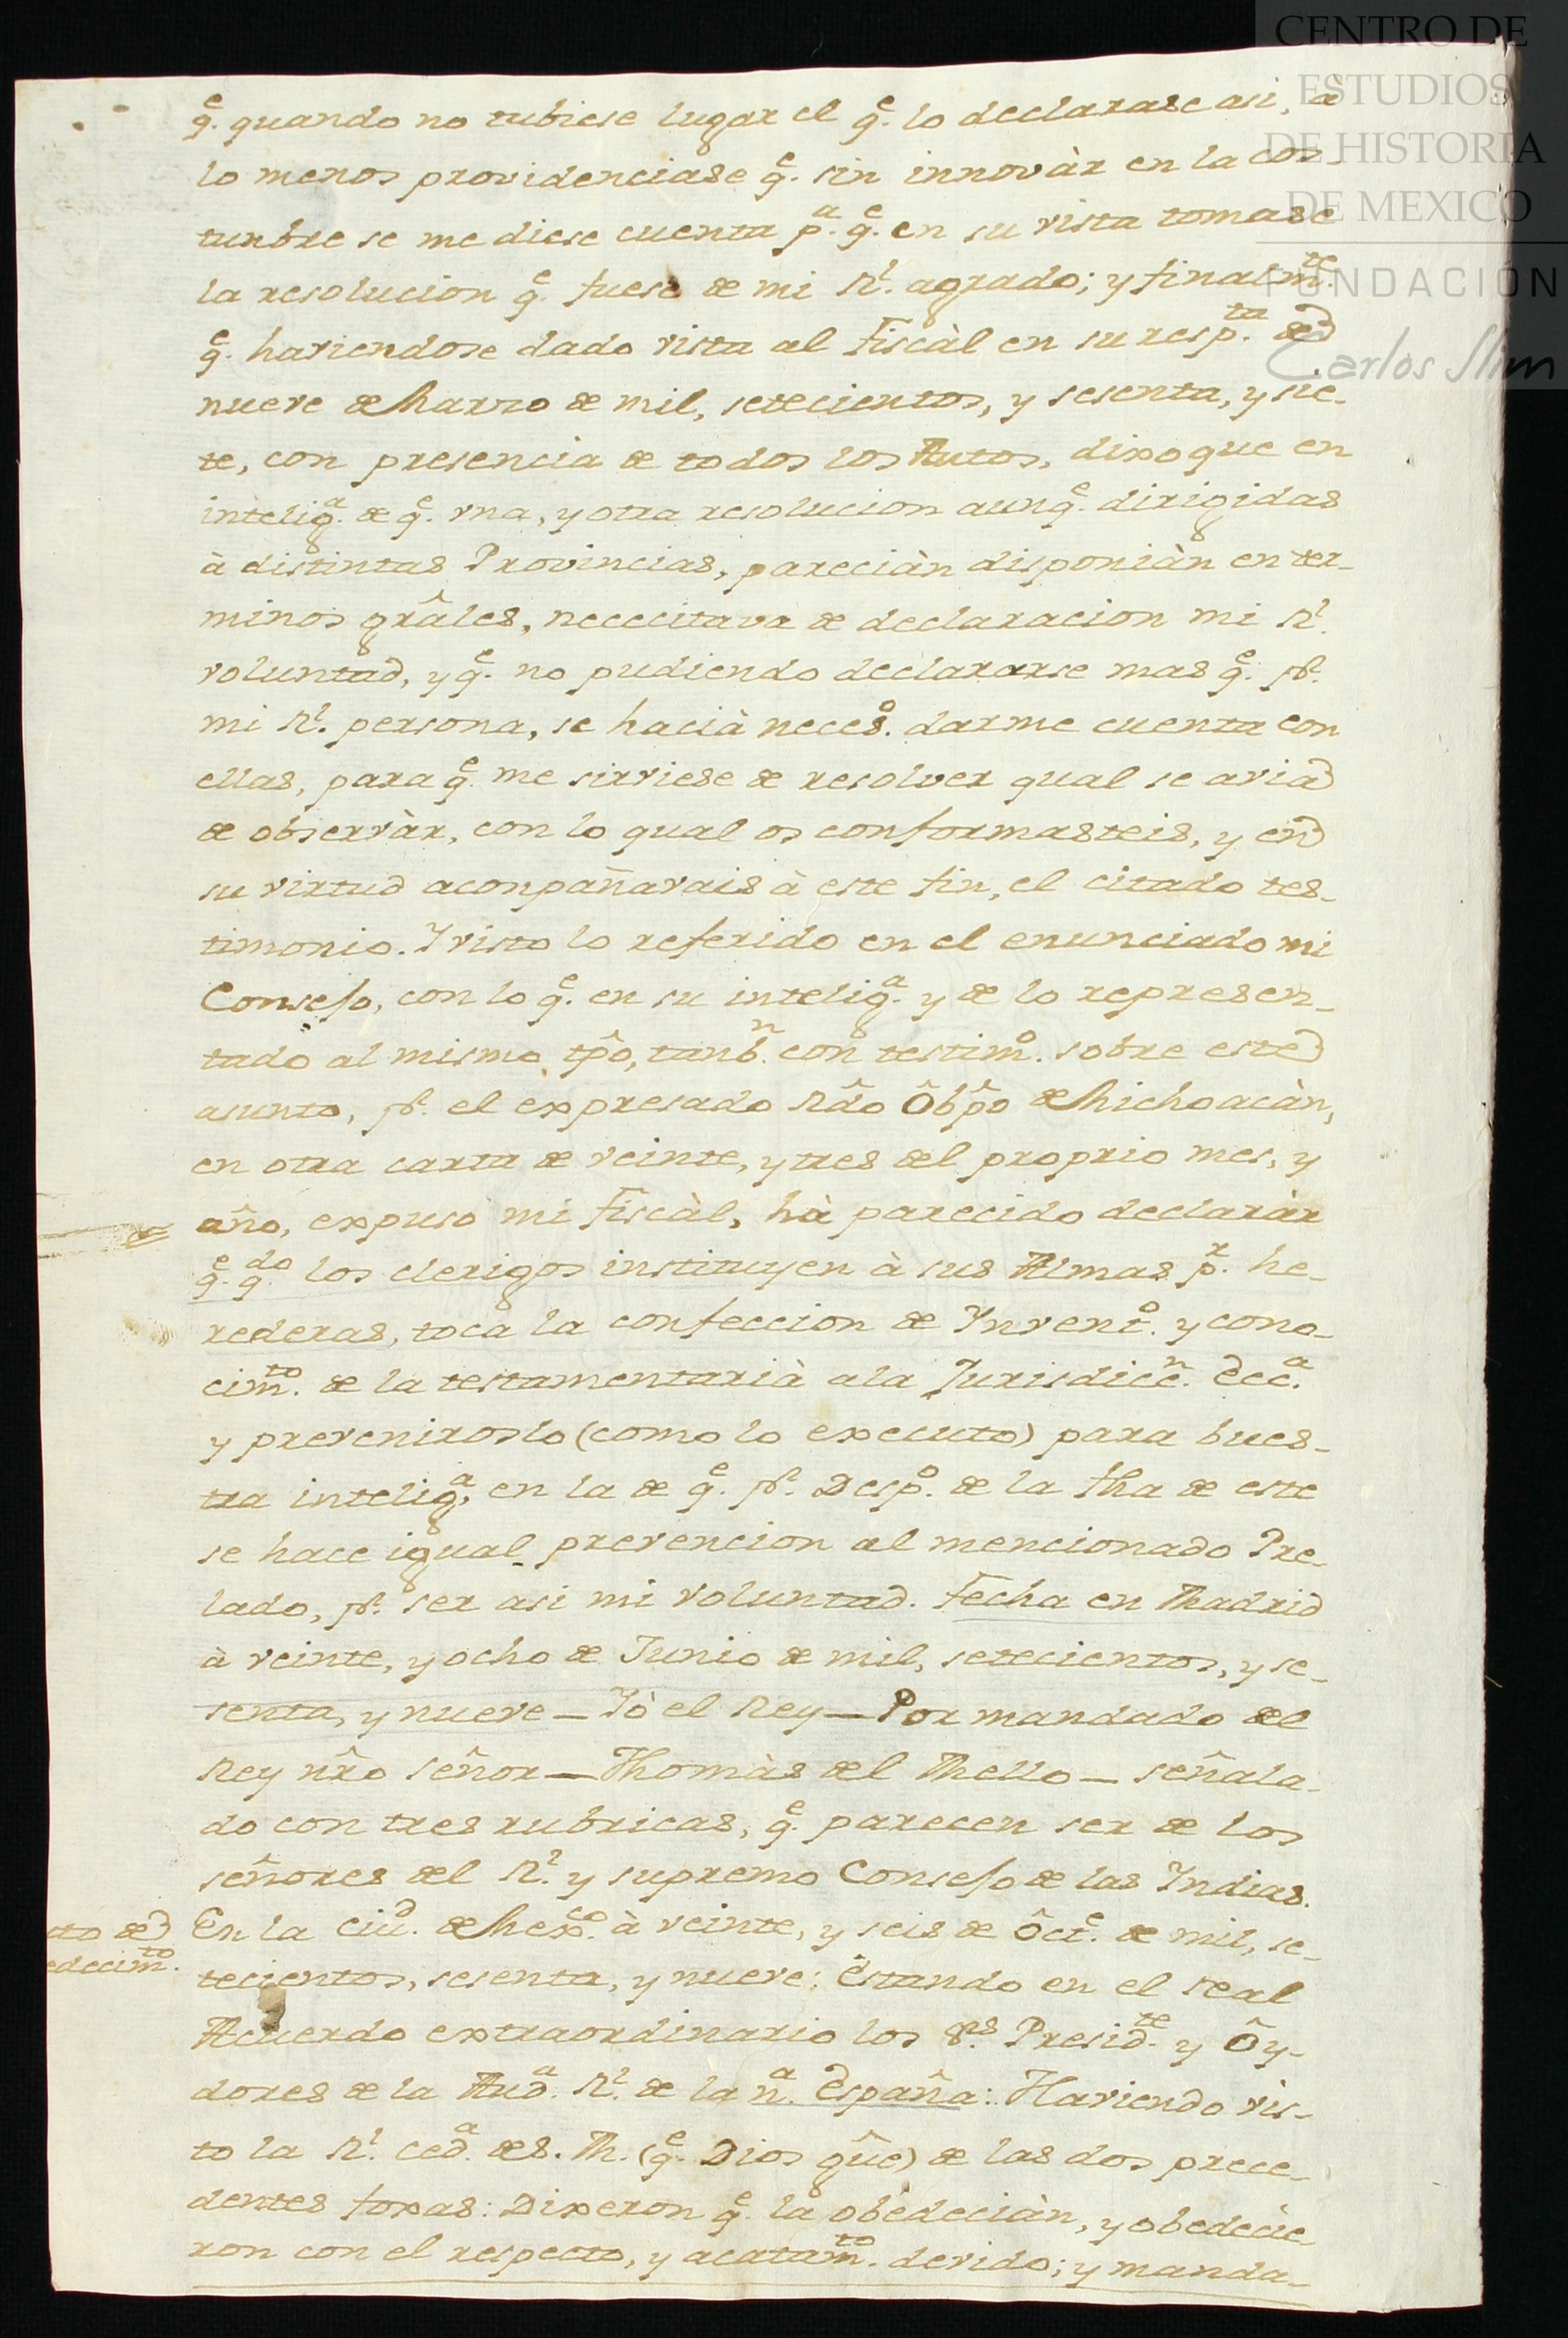 CENTRO DE
ESTUDIOS
DE HISTORIA
DE MEXICO
FUNDACIÓN
Carlos Slim
q.e quando no tubiese lugar el q.e lo declarase asi, à
lo menos providenciase q.e sin innovàr en la cos-
tunbre se me diese cuenta p.a q.e en su vista tomase
la resolucion q.e fuese de mi R.l agrado; y finalm.te
q.e haviendose dado vista al Fiscàl en su resp.ta de
nueve de Marzo de mil, setecientos, y sesenta, y sie-
te, con presencia de todos los Autos, dixo que en
intelig.a de q.e vna, y otra resolucion aunq.e dirigidas
à distintas Provincias, pareciàn disponiàn en ter-
minos grâles, nececitava de declaracion mi R.l
voluntad, y q.e no pudiendo declararse mas q.e pr.
mi R.l persona, se hacià neces.o darme cuenta con
ellas, para q.e me sirviese de resolver qual se avia
de observàr, con lo qual os conformasteis, y en
su virtud aconpañavais à este fin, el citado tes-
timonio. Y visto lo referido en el enunciado mi
Consejo, con lo q.e en su intelig.a y de lo represen-
tado al mismo tpô, tanb.n con testim.o sobre este
asunto, pr. el expresado Rdô Ôbpô de Michoacàn,
en otra carta de veinte, y tres del proprio mes, y
año, expuso mi Fiscàl, hà parecido declaràr
q.e q.do los clerigos instituyen à sus Almas p.r he-
rederas, toca la confeccion de Ynvent.o y cono-
cim.to de la testamentarià a la Jurisdicc.n Ecc.a
y preveniroslo (como lo executo) para bues-
tra intelig.a, en la de q.e pr. Desp.o de la fha de este
se hace igual prevencion al mencionado Pre-
lado, pr. ser asi mi voluntad. Fecha en Madrid
à veinte, y ocho de Junio de mil, setecientos, y se-
senta, y nueve — Yò el Rey — Por mandado del
Rey nrô señor — Thomàs del Mello — señala-
do con tres rubricas, q.e parecen ser de los
señores del R.l y supremo Consejo de las Indias.
to de
edecim.to
En la Ciu.d de Mex.co à veinte, y seis de Ôct.e de mil, se-
tecientos, sesenta, y nueve: Estando en el Real
Acuerdo extraordinario los S.res Presid.te y Ôy-
dores de la Aud.a R.l de la n.a España: Haviendo vis-
to la R.l ced.a de S. M. (q.e Dios gûe) de las dos prece-
dentes foxas: Dixeron q.e la obedeciàn, y obedecie-
ron con el respecto, y acatam.to devido; y manda-